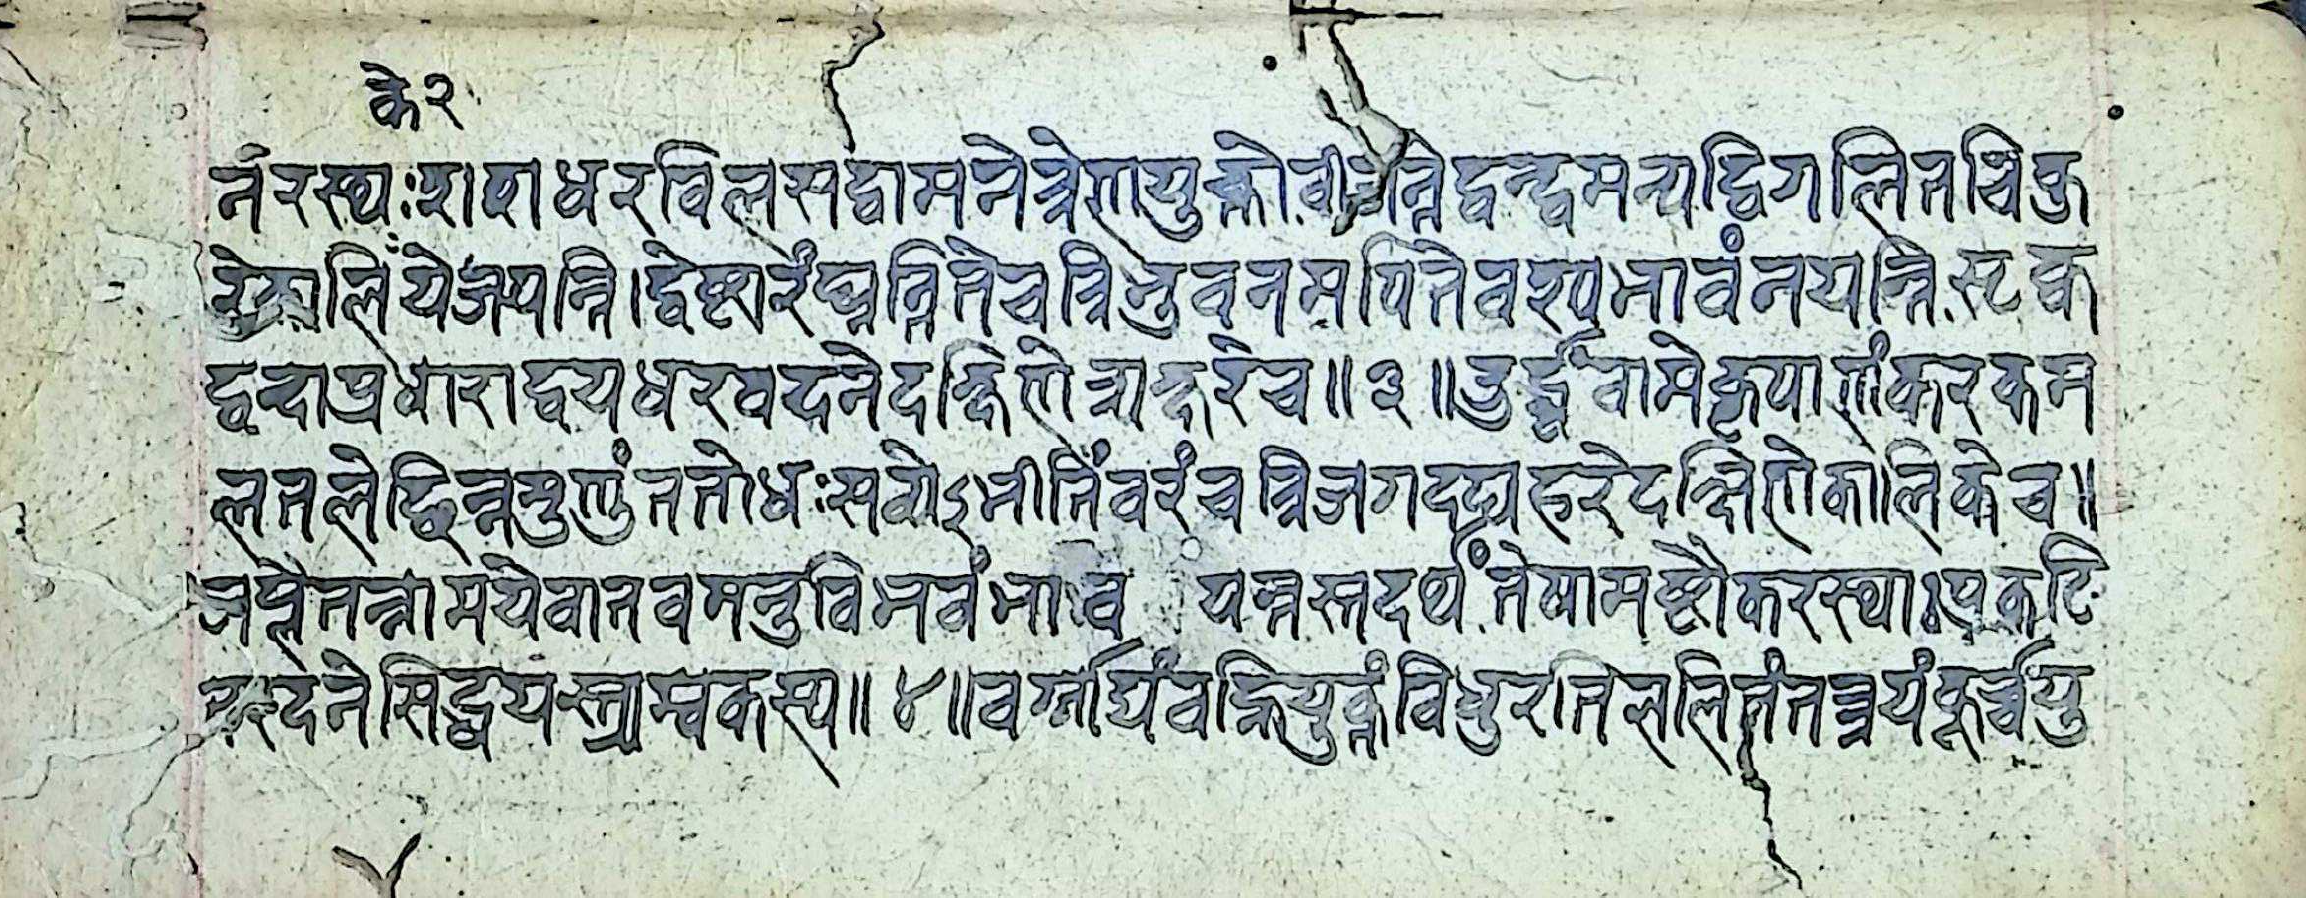 के२
र्नरस्थः शशधरविलसद्वामनेत्रेणयुक्तो बीजन्ते द्वन्द्वमन्यद्विगलितचिकु
रे कालिये जपन्ति। द्वेष्टारं घ्नन्ति ते च त्रिभुवनमपि ते वश्यभावं नयन्ति सृक्व
द्वन्दाश्रधाराद्वयधरवदने दक्षिणे त्र्यक्षरे च॥३॥ उर्द्ध्वं वामे कृपाणं करकम
लतले छिन्नमुण्डं ततोधः सव्येऽभीतिं वरं च त्रिजगदघहरे दक्षिणे कालिके च॥
जप्त्वे तन्नाम ये वा तव मनुविभवं भाव यन्तस्तदर्थं तेषामष्टौ करस्थाः प्रकटि
रदने सिद्धयस्त्र्यम्बकस्य॥४॥ वर्गाद्यं वह्नियुक्तं विधुरतिललितं तत्त्रयं कूर्च्चयु